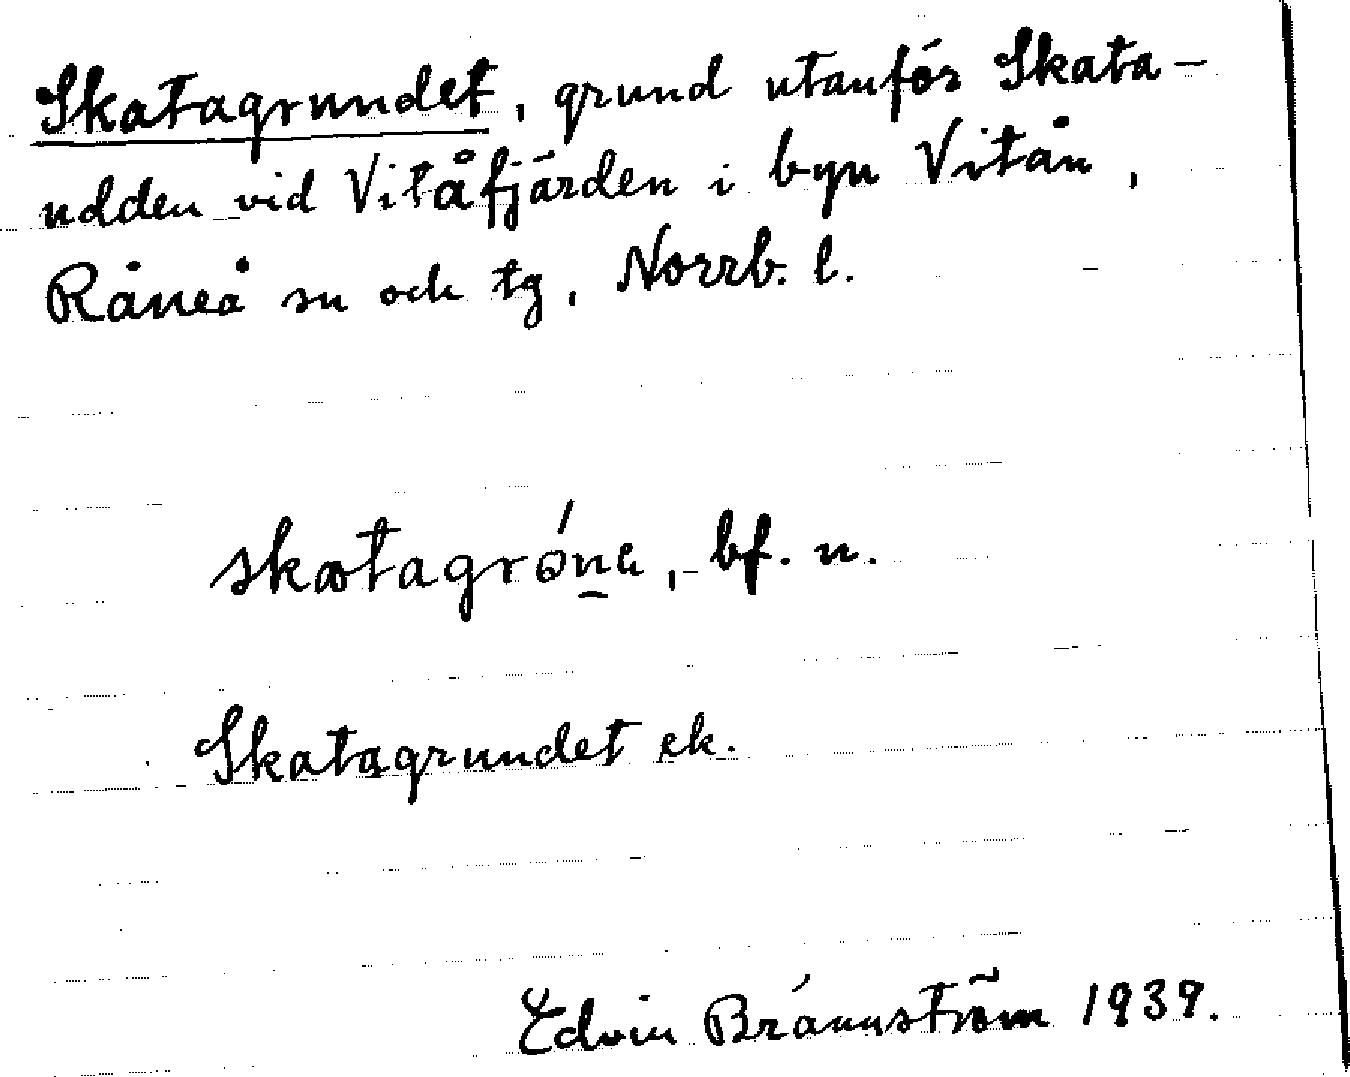 Skatagrundet, grund utanför Skata-
udden vid Vitåfjärden i byn Vitån,
Råneå sn och tg, Norrb. l.
skatagrón̲e, bf. n.
Skatagrundet ek.
Edvin Brännström 1939.